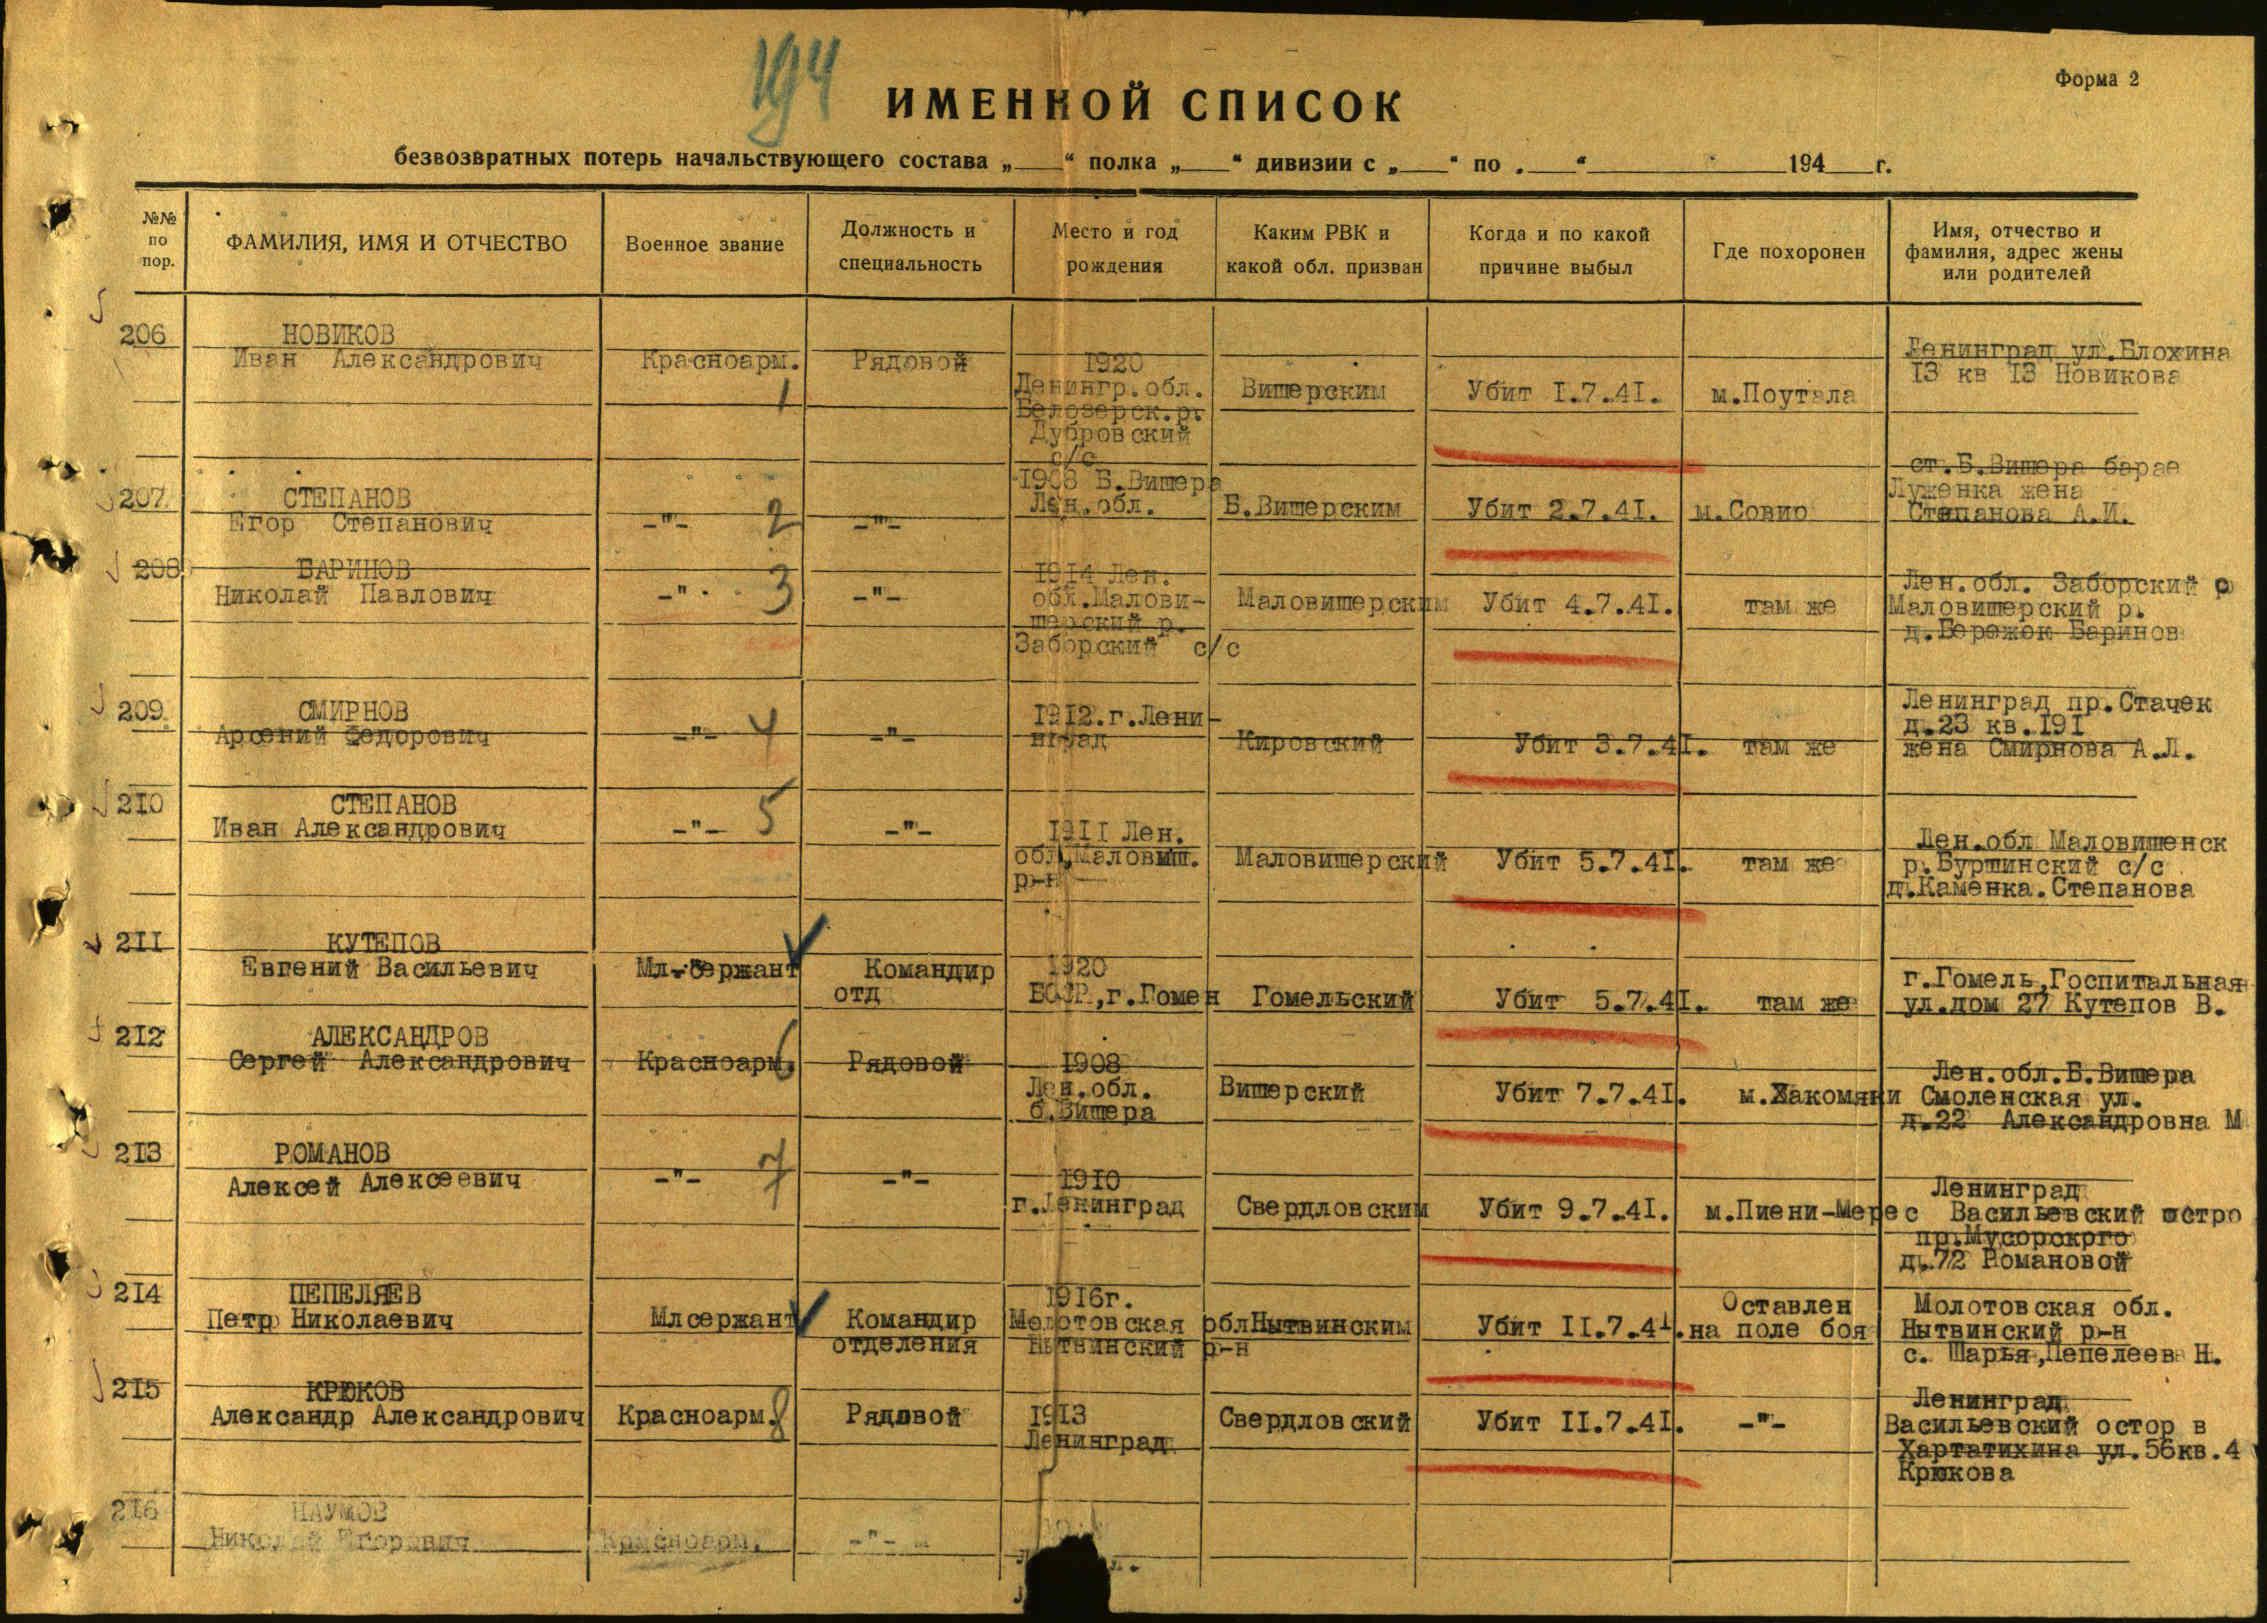 194
Форма 2
ИМЕННОЙ СПИСОК
безвозвратных потерь начальствующего состава „___“ полка „___“ дивизии с „___“ по „___“ ________ 194__ г.
№№ по пор.
ФАМИЛИЯ, ИМЯ И ОТЧЕСТВО
Военное звание
Должность и специальность
Место и год рождения
Каким РВК и какой обл. призван
Когда и по какой причине выбыл
Где похоронен
Имя, отчество и фамилия, адрес жены или родителей
206
НОВИКОВ
Иван Александрович
Красноарм.
1
Рядовой
1920
Ленингр.обл.
Белозерск.р.
Дубровский
с/с
Вишерским
Убит I.7.4I.
м.Поутала
Ленинград ул.Блохина
I3 кв I3 Новикова
207
СТЕПАНОВ
Егор Степанович
-"-
2
-"-
1908 Б.Вишера
Лен.обл.
Б.Вишерским
Убит 2.7.4I.
м.Совио
ст.Б.Вишера барак
Луженка жена
Степанова А.И.
208
БАРИНОВ
Николай Павлович
-"-
3
-"-
1914 Лен.
обл.Малови-
шерский р.
Заборский с/с
Маловишерским
Убит 4.7.4I.
там же
Лен.обл. Заборский с
Маловишерский р.
д.Бережок Баринов
209
СМИРНОВ
Арсений Федорович
-"-
4
-"-
I9I2.г.Лени-
нград
Кировский
Убит 3.7.4I.
там же
Ленинград пр.Стачек
д.23 кв.I9I
жена Смирнова А.Л.
2I0
СТЕПАНОВ
Иван Александрович
-"-
5
-"-
I9II Лен.
обл,Маловиш.
р-н
Маловишерский
Убит 5.7.4I.
там же
Лен.обл Маловишенск
р.Буршинский с/с
д.Каменка.Степанова
2II
КУТЕПОВ
Евгений Васильевич
Мл.сержант
Командир
отд
I920
БССР,г.Гомел
Гомельский
Убит 5.7.4I.
там же
г.Гомель,Госпитальная
ул.дом 27 Кутепов В.
2I2
АЛЕКСАНДРОВ
Сергей Александрович
Красноарм.
6
Рядовой
I908
Лен.обл.
б.Вишера
Вишерский
Убит 7.7.4I.
м.Хакомяки
Лен.обл.Б.Вишера
Смоленская ул.
д.22 Александровна М
2I3
РОМАНОВ
Алексей Алексеевич
-"-
7
-"-
I9I0
г.Ленинград
Свердловским
Убит 9.7.4I.
м.Пиени-Мерес
Ленинград
Васильевский остро
пр.Мусорского
д.72 Романовой
2I4
ПЕПЕЛЯЕВ
Петр Николаевич
Млсержант
Командир
отделения
I9I6г.
Молотовская обл
Нытвинский р-н
Нытвинским
Убит II.7.4I.
Оставлен
на поле боя
Молотовская обл.
Нытвинский р-н
с. Шарья,Пепелеев Н.
2I5
КРЮКОВ
Александр Александрович
Красноарм.
8
Рядовой
I9I3
Ленинград
Свердловский
Убит II.7.4I.
-"-
Ленинград
Васильевский остор в
Хартатихина ул.56кв.4
Крюкова
2I6
НАУМОВ
Николай Егорович
Красноарм.
-"-